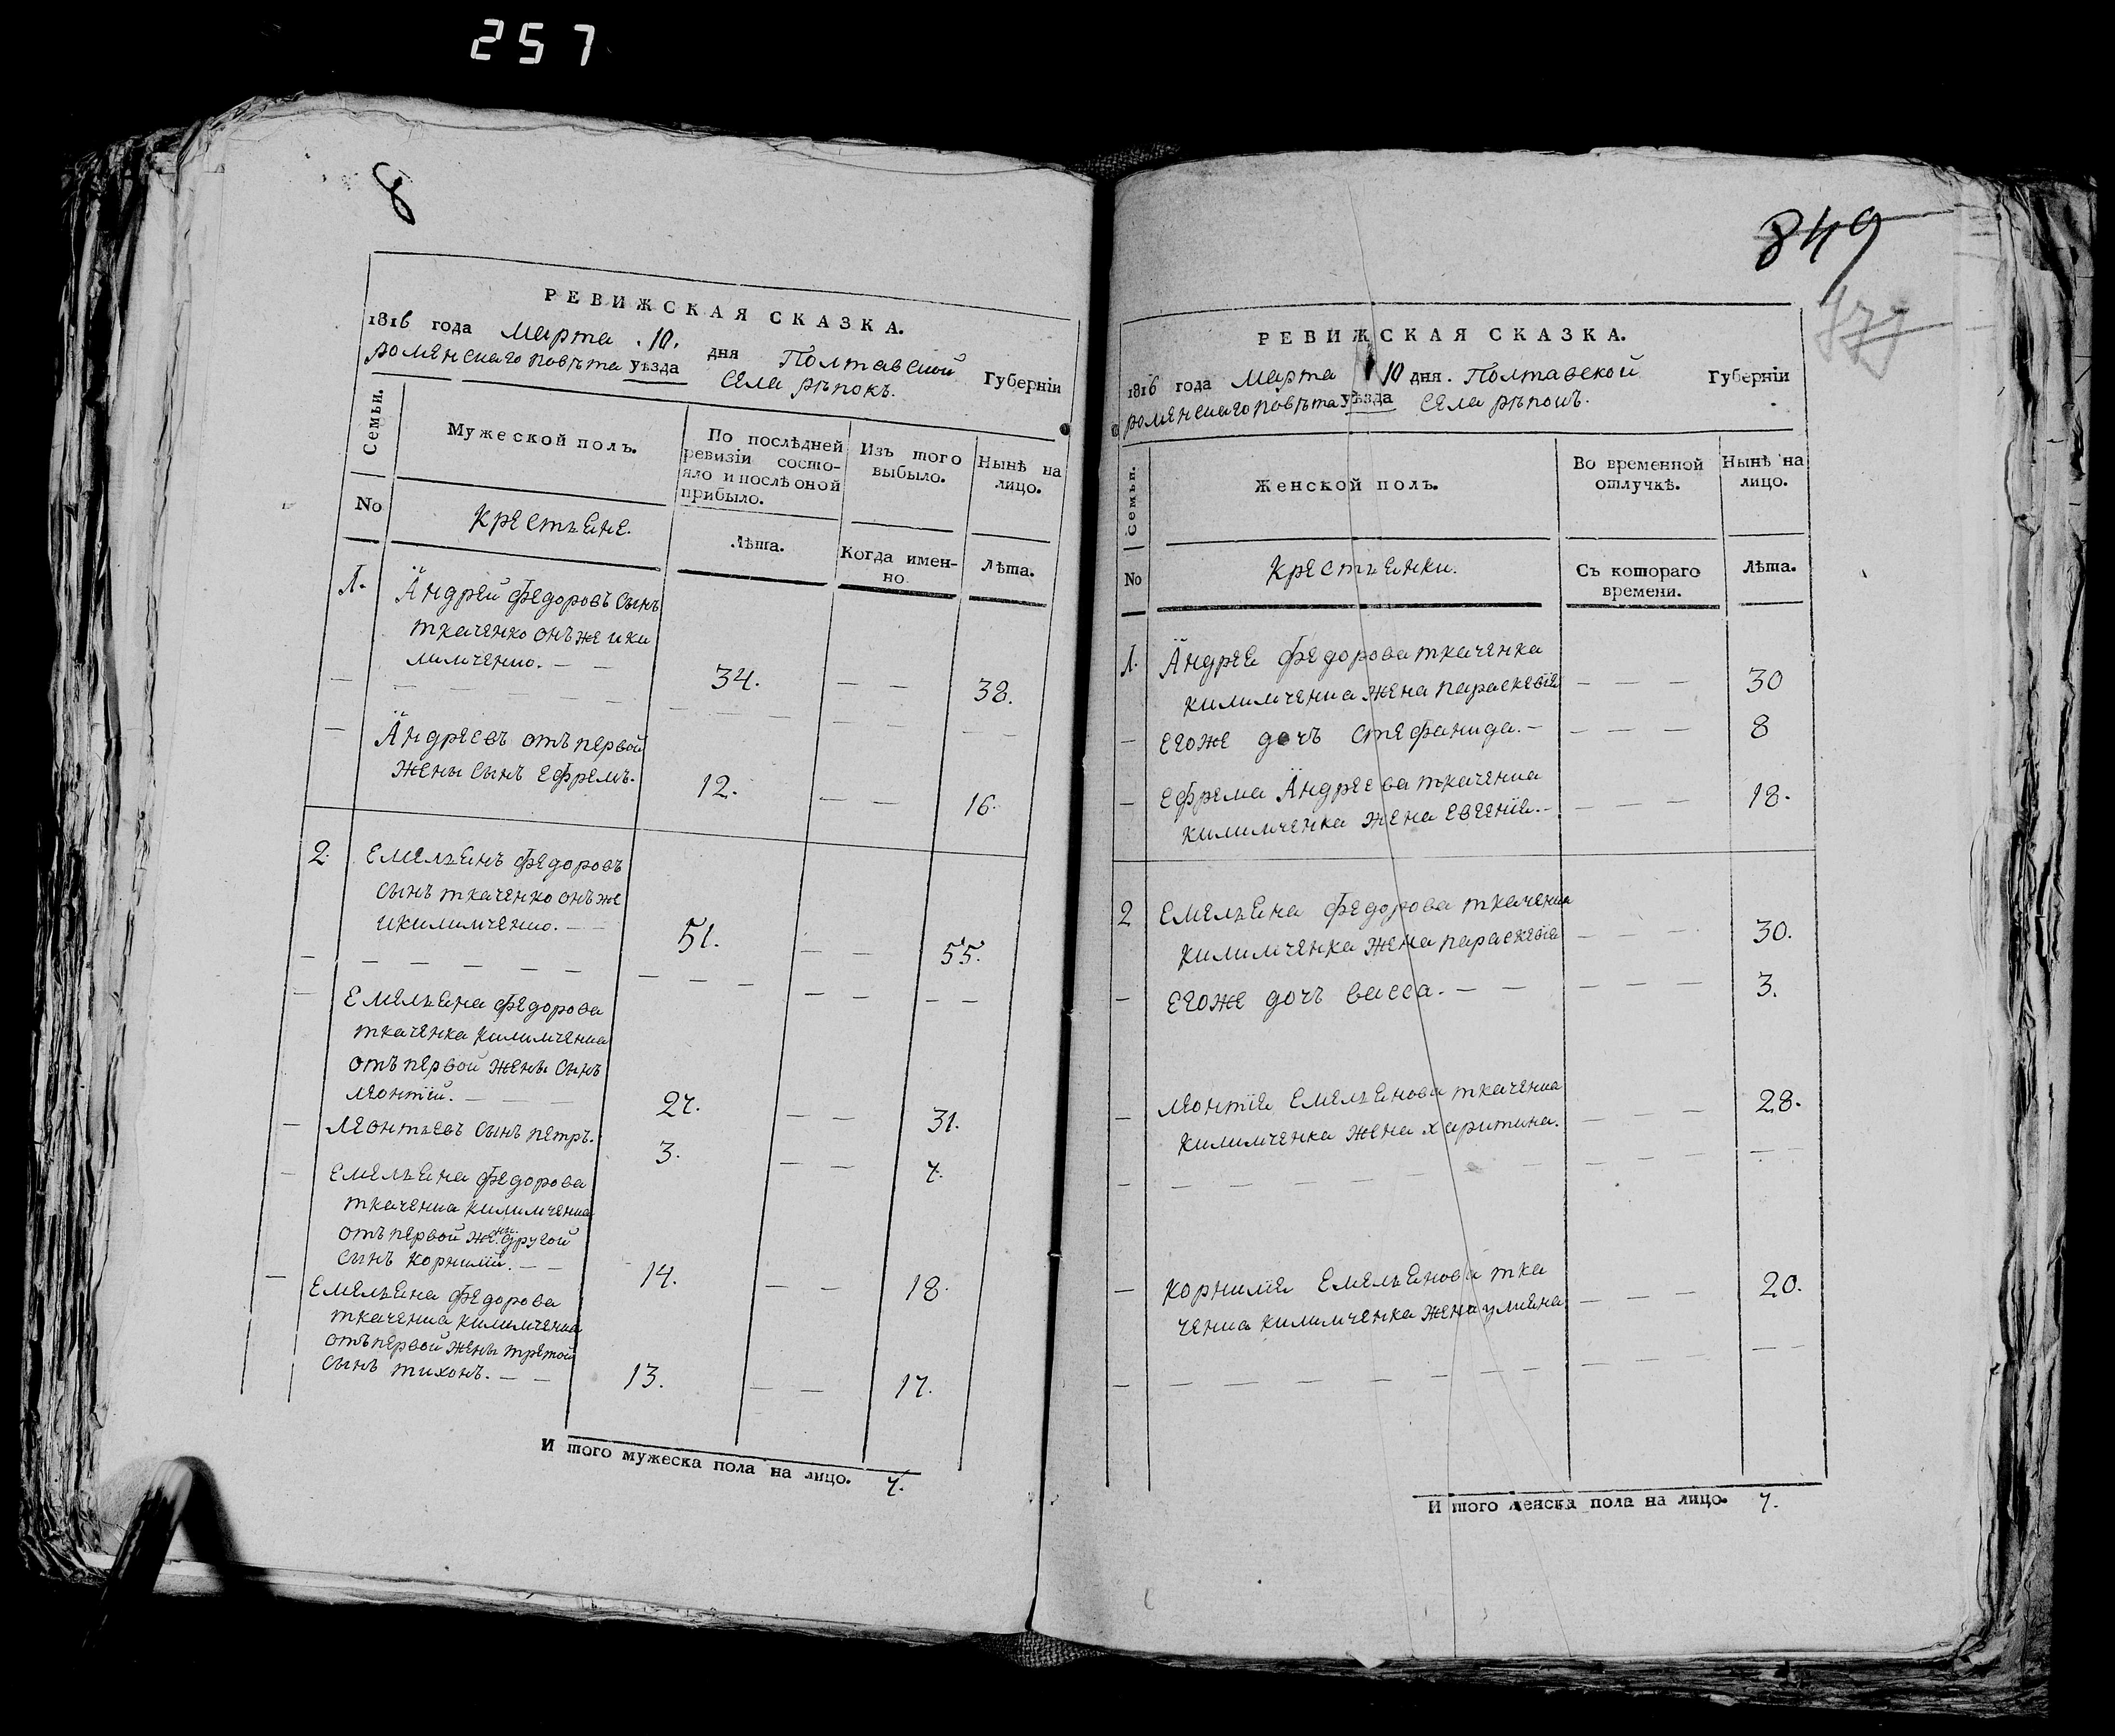 257
8
РЕВИЖСКАЯ СКАЗКА.
1816 года Марта .10. дня Полтавской Губерніи
роменскаго повѣта уѣзда села рѣпокъ.
Семьи.
Мужеской полъ.
По послѣдней ревизіи состояло и послѣ оной прибыло.
Изъ того выбыло.
Нынѣ на лицо.
No
Крестьяне.
Лѣта.
Когда именно.
Лѣта.
1. Андрей федоровъ сынъ
ткаченко онъ же и ки
лимченко. — — 34. — — 38.
— Андреевъ отъ первой
жены сынъ ефремъ. 12. — — 16.
2. емельянъ федоровъ
сынъ ткаченко онъ же
и килимченко. — — 51. — — 55.
— емельяна федорова
ткаченка килимченка
отъ первой жены сынъ
леонтій. — — — 27. — — 31.
— леонтьевъ сынъ петръ. 3. — — 7.
— емельяна федорова
ткаченка килимченка
отъ первой жены другой
сынъ корнилій. — — 14. — — 18.
— емельяна федорова
ткаченка килимченка
отъ первой жены третой
сынъ тихонъ. — — 13. — — 17.
И того мужеска пола на лицо. 7.
849
РЕВИЖСКАЯ СКАЗКА.
1816 года Марта 10 дня. Полтавской Губерніи
роменскаго повѣта уѣзда села рѣпокъ.
Семьи.
Женской полъ.
Во временной отлучкѣ.
Нынѣ на лицо.
No
Крестьянки.
Съ котораго времени.
Лѣта.
1. Андрея федорова ткаченка
килимченка жена параскевія — — — 30
— егоже дочъ стефанида. — — — — 8
— ефрема Андреева ткаченка
килимченка жена евгенія. — — — — 18.
2 емельяна федорова ткаченка
килимченка жена параскевія — — — 30.
— егоже дочъ васса. — — — — — 3.
— леонтія емельянова ткаченка
килимченка жена харитина. — — — 28.
— корнилія емельянова тка
ченка килимченка жена уляяна — — — 20.
И того женска пола на лицо. 7.